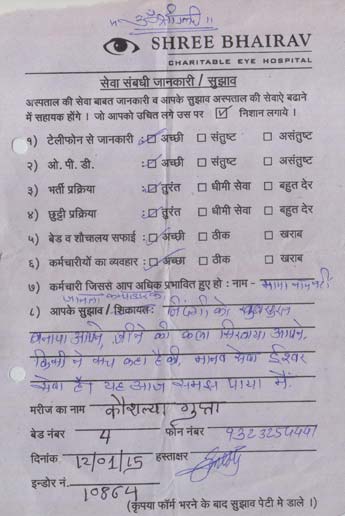 SHREE BHAIRAV
CHARITABLE EYE HOSPITAL
सेवा संबधी जानकारी / सुझाव
अस्पताल की सेवा बाबत जानकारी व आपके सुझाव अस्पताल की सेवाऐ बढाने
में सहायक होंगे । जो आपको उचित लगे उस पर ☑ निशान लगाये ।
१) टेलीफोन से जानकारी : ☑ अच्छी ☐ संतुष्ट ☐ असंतुष्ट
२) ओ. पी. डी. : ☑ अच्छी ☐ संतुष्ट ☐ असंतुष्ट
३) भर्ती प्रक्रिया : ☑ तुरंत ☐ धीमी सेवा ☐ बहुत देर
४) छुट्टी प्रक्रिया : ☑ तुरंत ☐ धीमी सेवा ☐ बहुत देर
५) बेड व शौचालय सफाई : ☑ अच्छा ☐ ठीक ☐ खराब
६) कर्मचारीयों का व्यवहार : ☑ अच्छा ☐ ठीक ☐ खराब
७) कर्मचारी जिससे आप अधिक प्रभावित हुए हो : नाम -
८) आपके सुझाव / शिकायत : जिंदगी को खुबसुरत
बनाया आपने, जीने की कला सिखाया आपने,
किसी ने सच कहा है की, मानव सेवा ईश्वर
सेवा है। यह आज समझ पाया मैं.
मरीज का नाम कौशल्या गुप्ता
बेड नंबर 4 फोन नंबर
दिनांक 12/01/15 हस्ताक्षर
इन्डोर नं. 10864
(कृपया फॉर्म भरने के बाद सुझाव पेटी मे डाले ।)